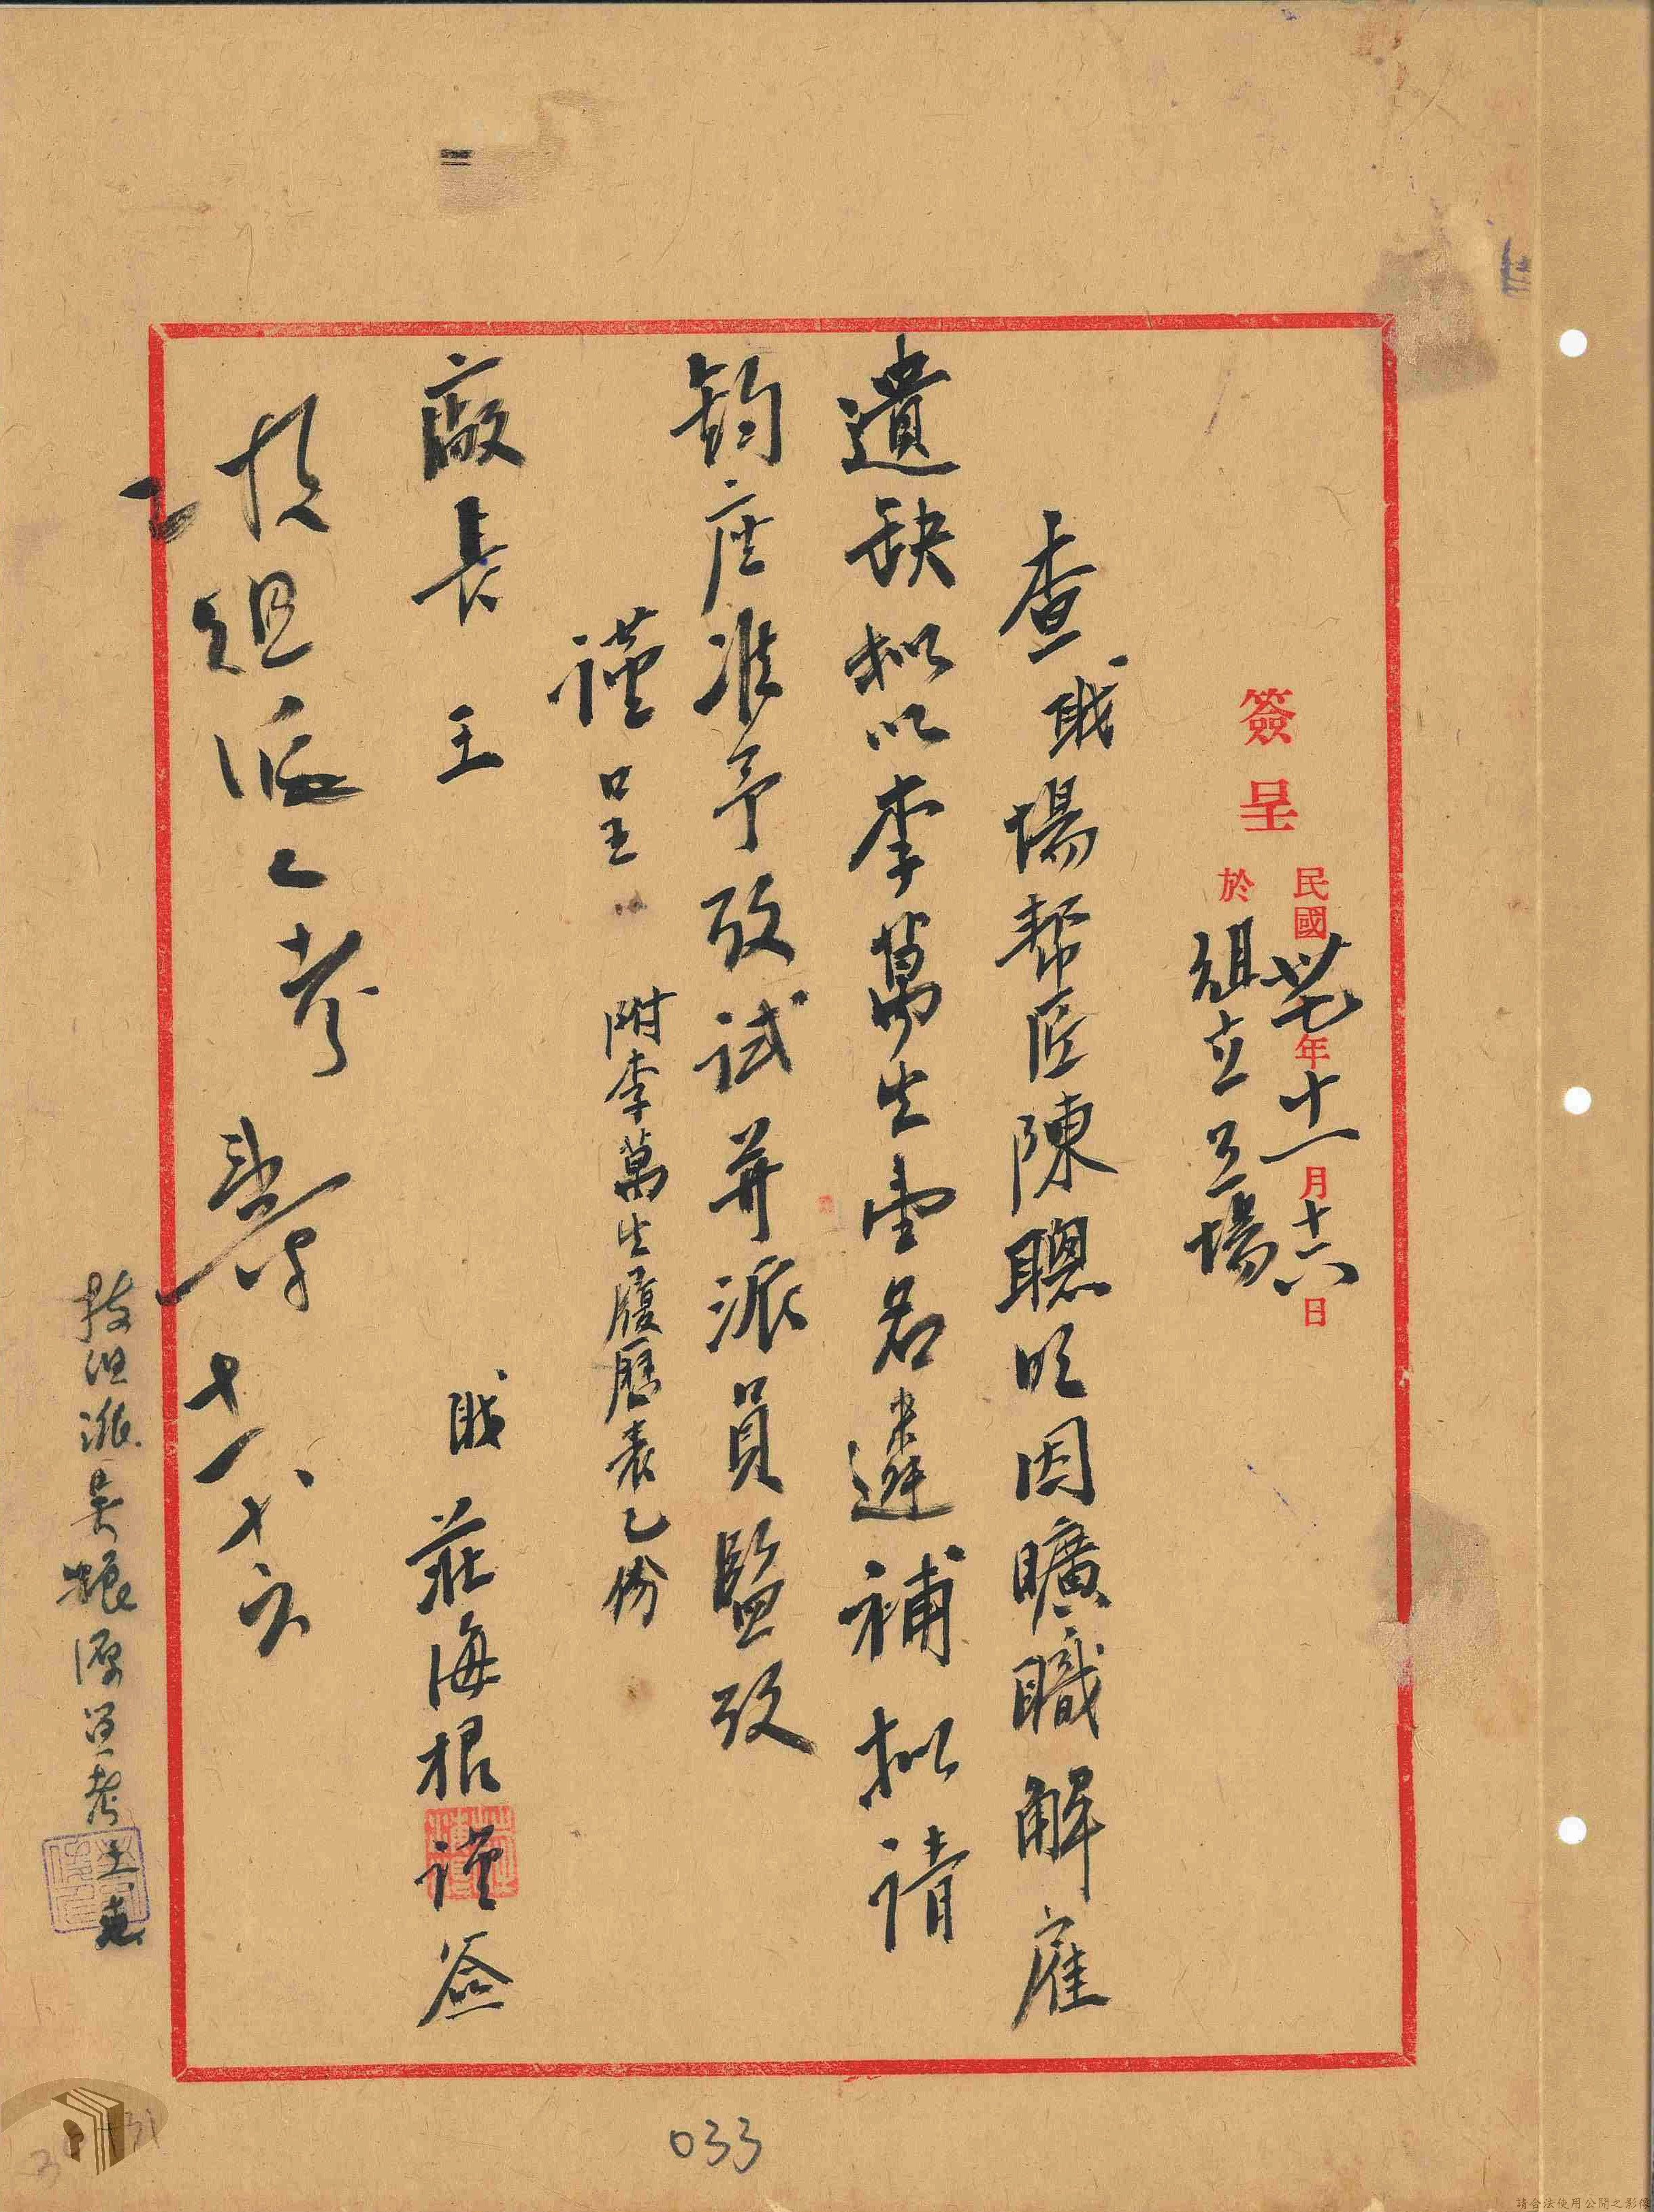 簽呈
民國卅七年十一月十六日
於組立工場
查職場幫匠陳聰明因曠職解雇
遺缺拟以李萬生壹名遴補拟请
鈞座准予攷試并派員監攷
謹呈
附李萬生履歷表乙份
廠長 王
職 莊海根 謹簽
技組派乙考
十一、十六
技組派吳振源監考
033
請合法使用公開之影像